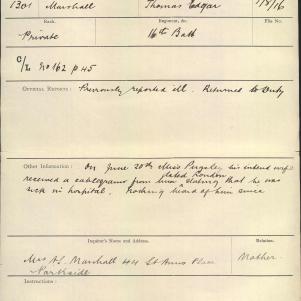 1301 Marshall Thomas Edgar 1/8/16
Rank. Regiment, &c. File No.
Private 16th Batt
C/L No 162 p 45
Official Reports: Previously reported ill. Returned to Duty
Other Information: On June 20th Miss his intend wife
dated London
received a cablegram from him stating that he was
sick in hospital. Nothing heard of him since
Inquirer's Name and Address. Relation.
Mrs A.L. Marshall 44 St Anns Place Mother.
Parkside
Instructions: